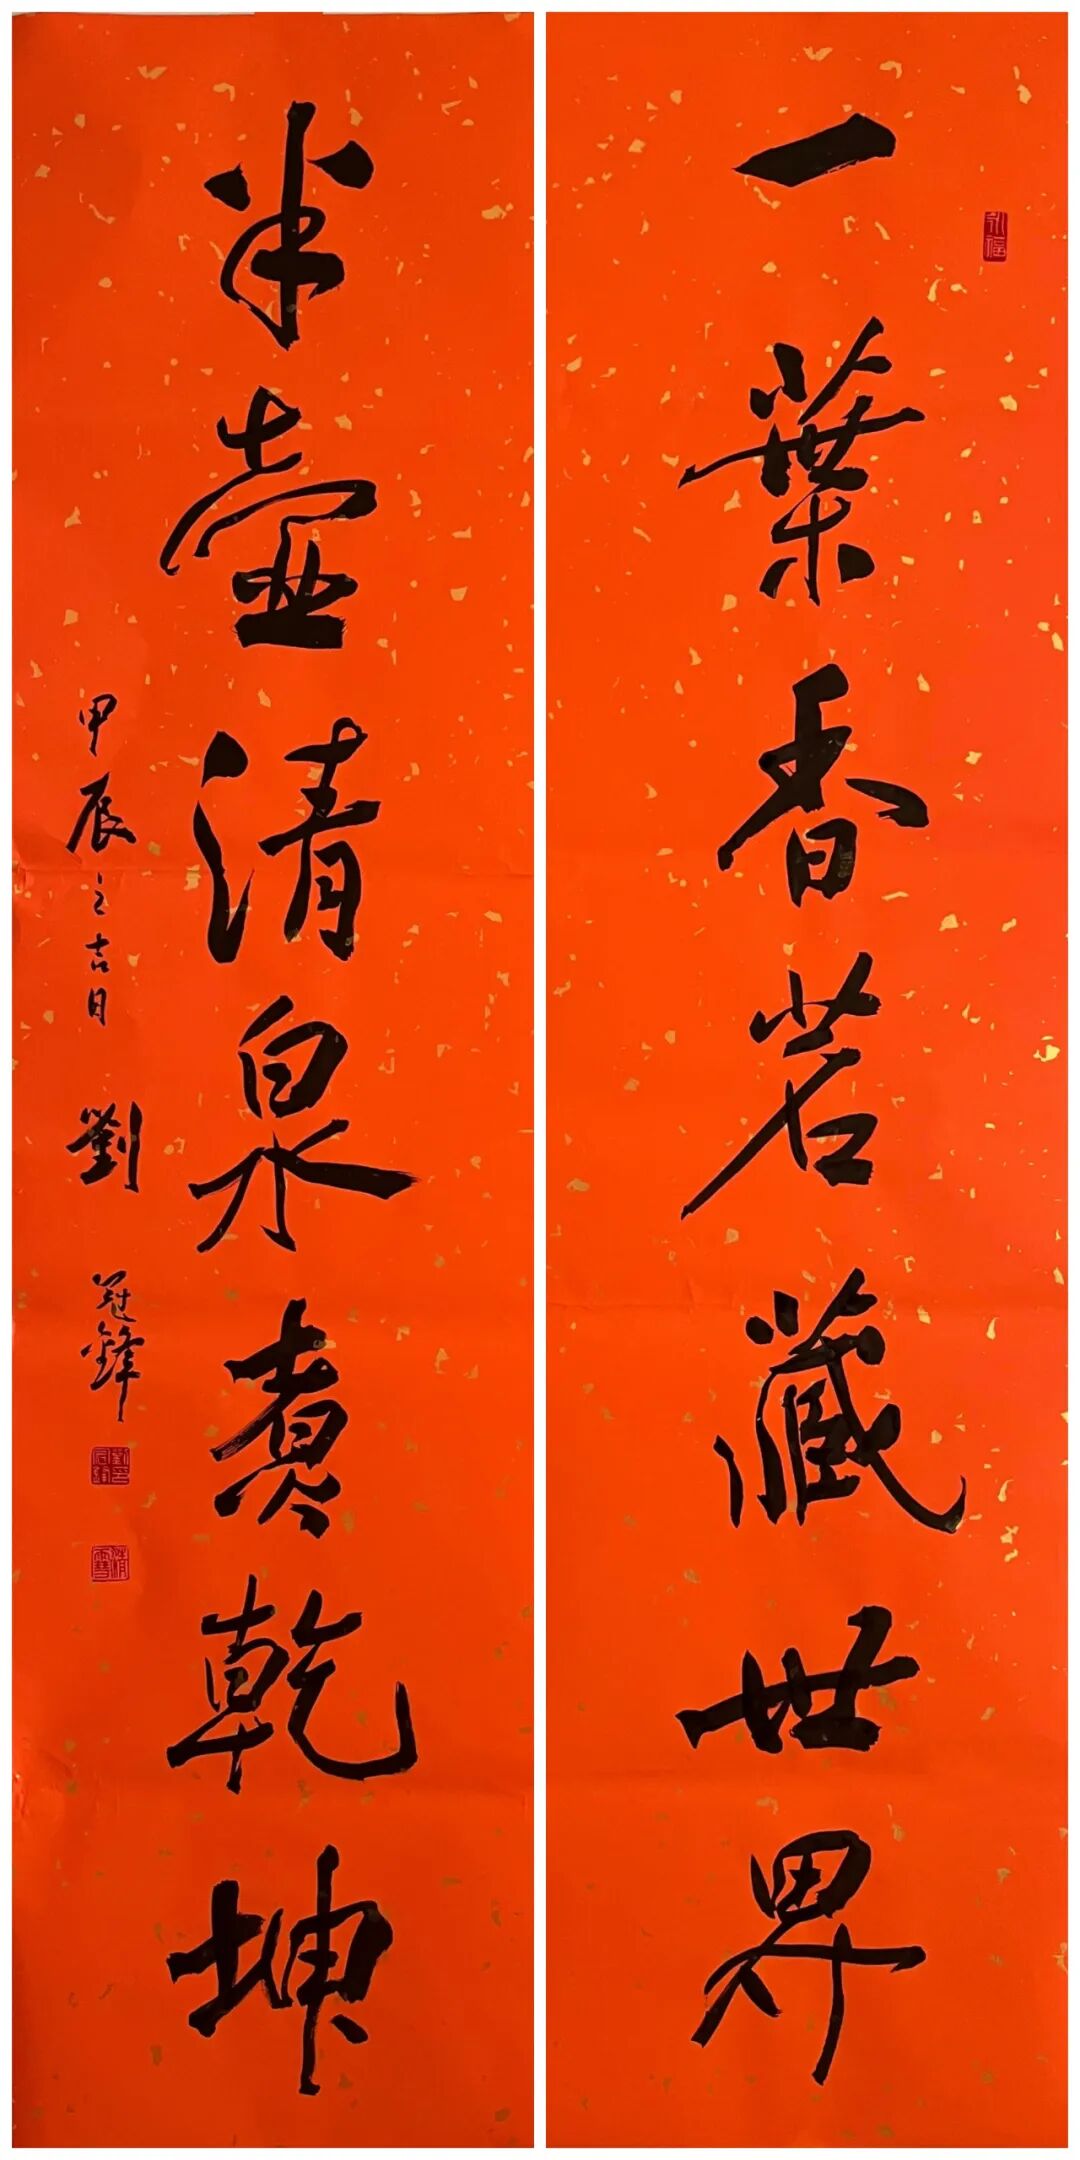 一葉香茗藏世界
半壺清泉煮乾坤
甲辰之吉日 劉冠鋒